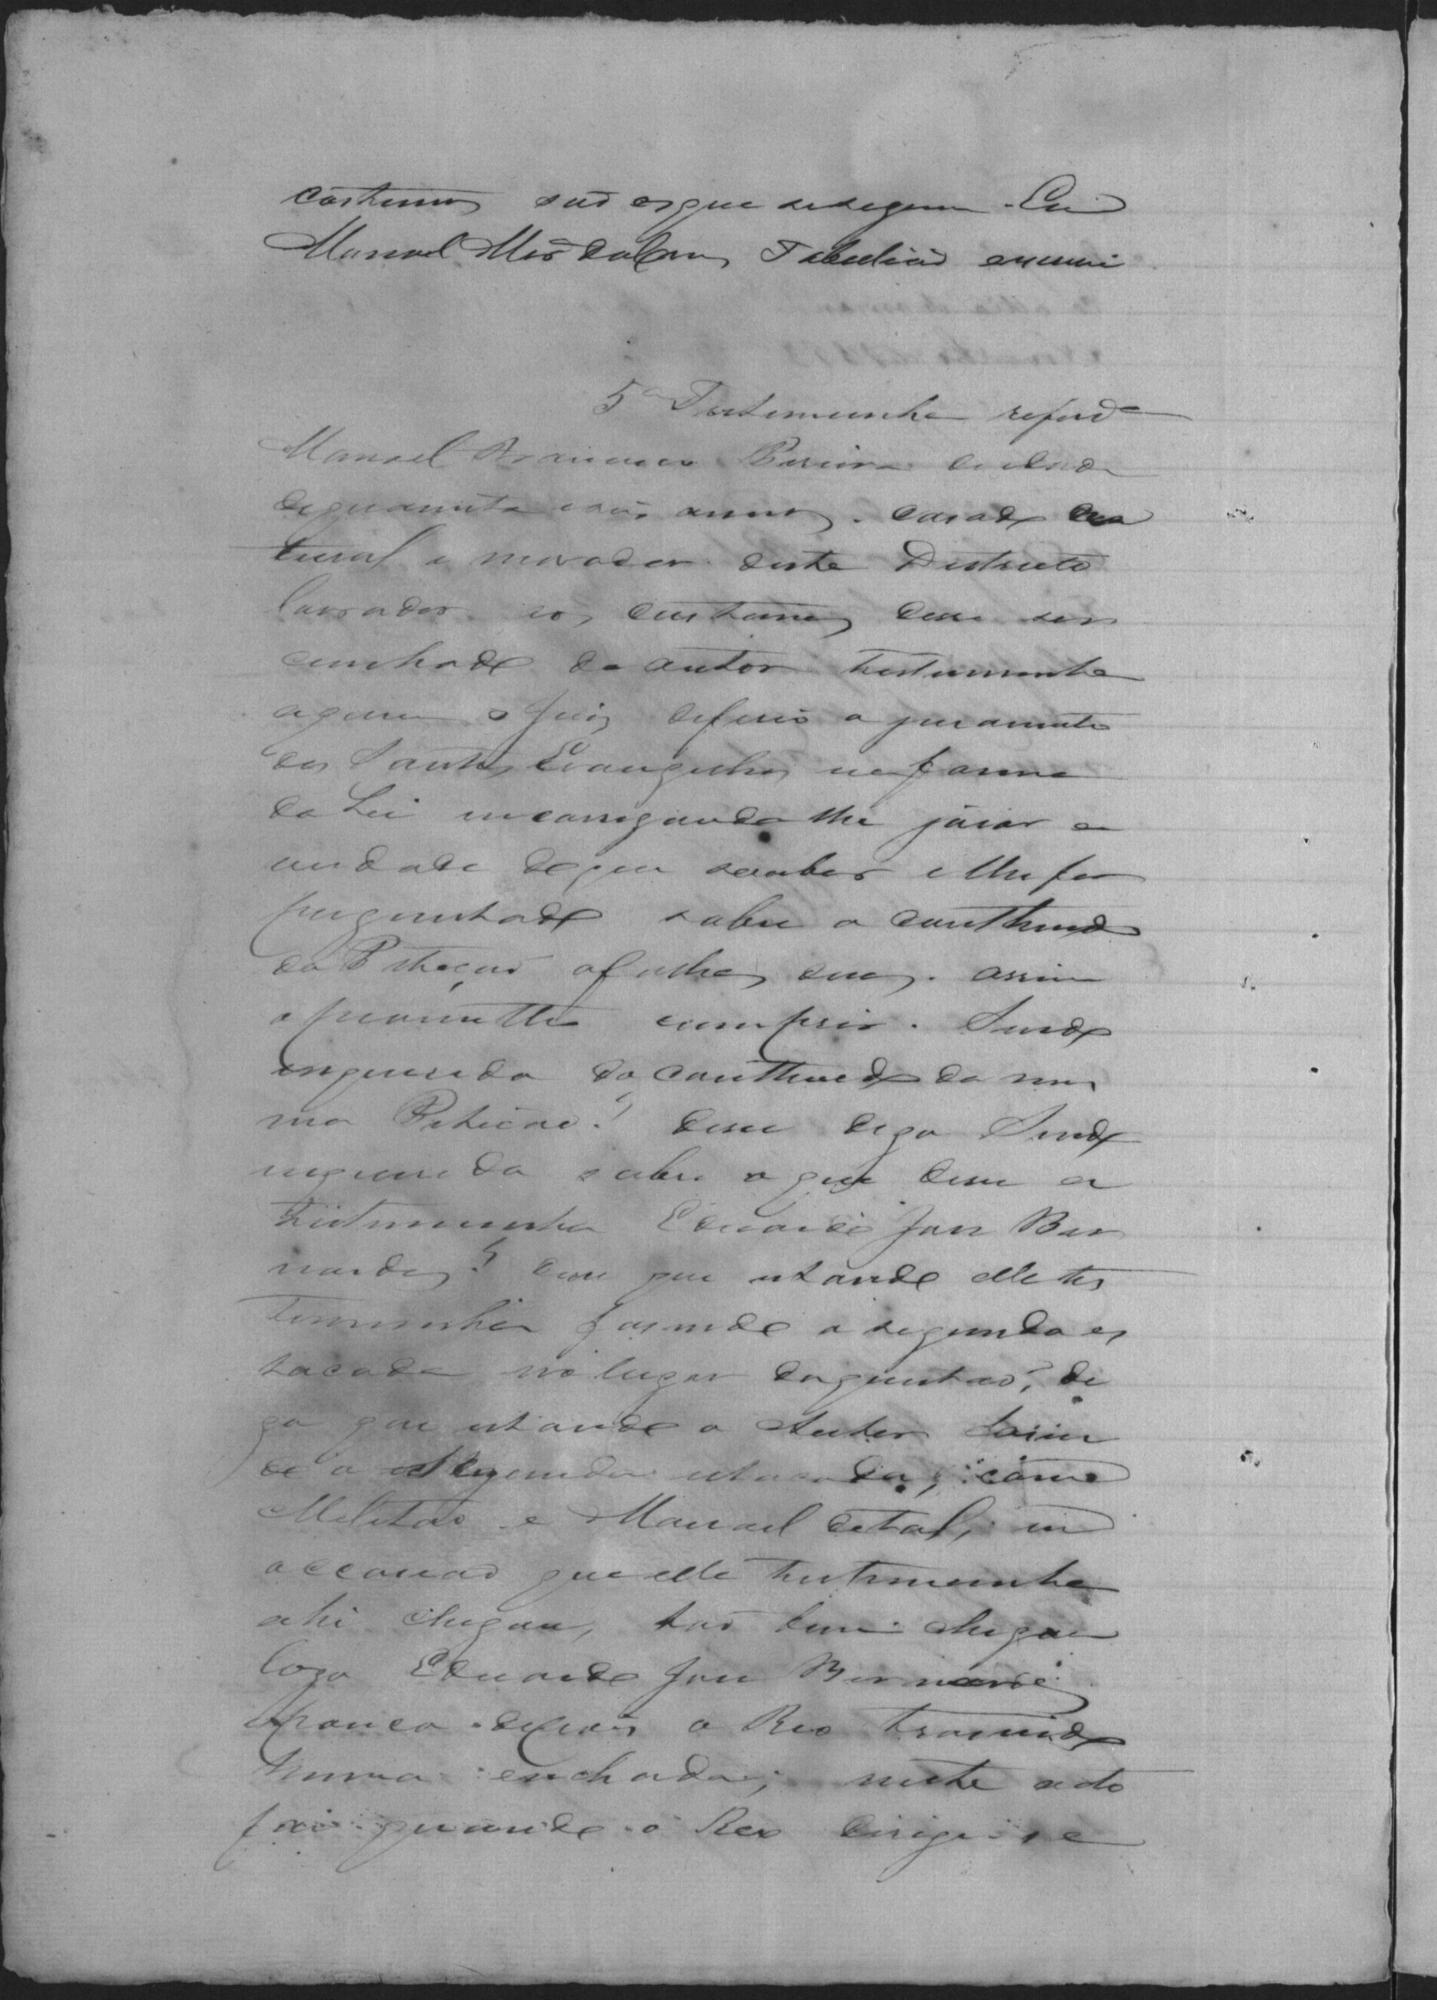 costumes são os que se seguem. Eu
Manoel Tabelião escrivi
5ª Testemunha referida
Manoel Francisco Pereira de idade
de quarenta e seis annos, casado na
tural e morador deste Districto
lavrador, e os custumes disse ser
cunhado do autor testemunha
a quem o Juiz deferio o juramento
dos Santos Evangelhos na forma
da Lei encarregando lhe jurar a
verdade do que souber e lhe for
perguntado sobre o conthiudo
da Petição a folhas duas. assim
o prometteo cumprir. Sendo
inquerida do conthiudo da mes
ma Petição? disse digo Sendo
inquerida sobre o que disse a
testemunha Eduardo José Ber
nardes? disse que estando elle tes
temunha fasendo a segunda es
tacada no lugar da questão, di
go que estando o Autor fasen
do a segunda estacada, com
Melitão e Manoel de tal, em
occasião que elle testemunha
ahi chegou, tão bem chegou
logo Eduardo José Bernardes
pouco depois o Reo trasendo
huma enchada; neste acto
foi quando o Reo dirigi-se